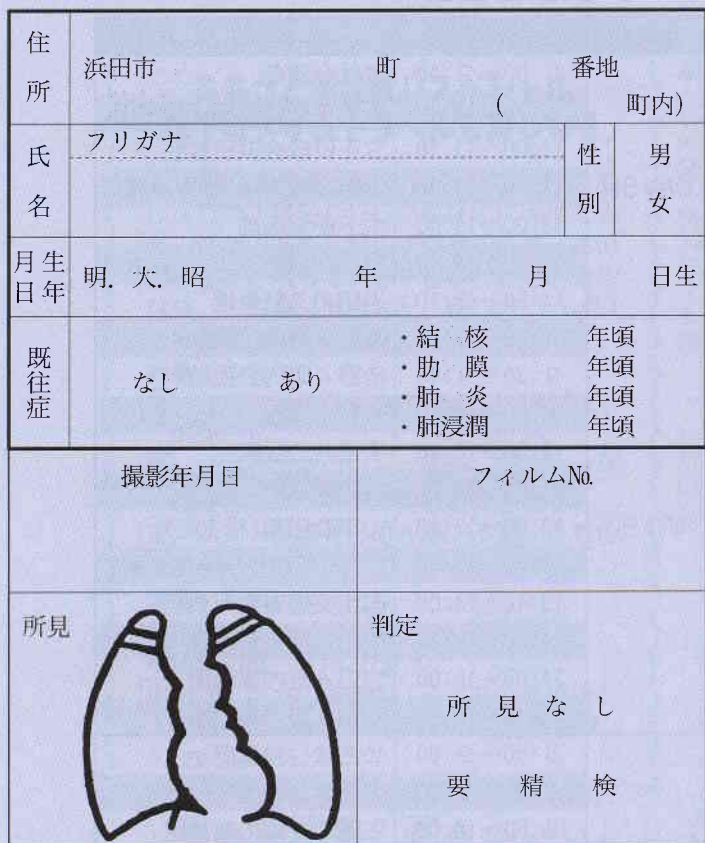 住所
浜田市 町 番地
( 町内)
氏名
フリガナ
性別
男
女
生年月日
明. 大. 昭 年 月 日生
既往症
なし あり
・結 核 年頃
・肋 膜 年頃
・肺 炎 年頃
・肺浸潤 年頃
撮影年月日
フィルム№
所見
判定
所 見 な し
要 精 検